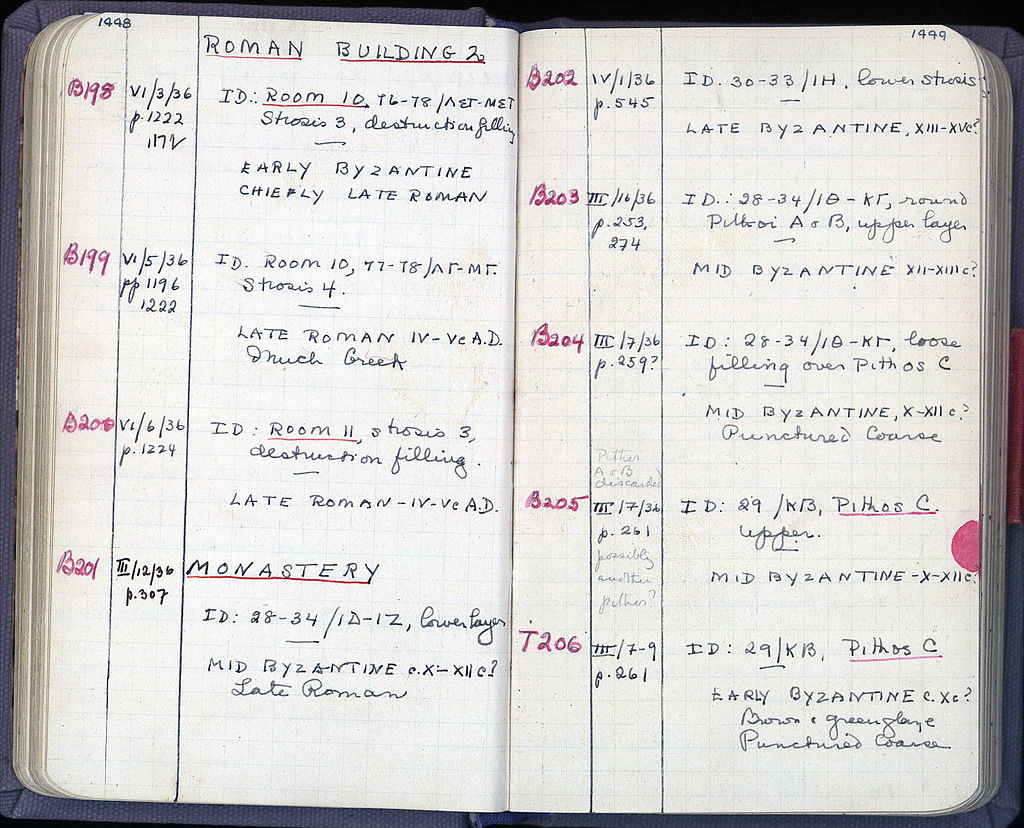 1448
ROMAN BUILDING 2
B198 VI/3/36 ID: Room 10, 76-78/ΛΣΤ-ΜΣΤ
p.1222 Strosis 3, destruction filling
1172
EARLY BYZANTINE
CHIEFLY LATE ROMAN
B199 VI/5/36 ID. Room 10, 77-78/ΛΓ-ΜΓ.
pp 1196 Strosis 4.
1222
LATE ROMAN IV-Vc A.D.
Much Greek
B200 VI/6/36 ID: Room 11, strosis 3,
p.1224 destruction filling.
LATE ROMAN-IV-Vc A.D.
B201 III/12/36 MONASTERY
p.307
ID: 28-34/ΙΔ-ΙΖ, lower layer
MID BYZANTINE c.X-XIIc?
Late Roman
1449
B202 IV/1/36 ID. 30-33/ΙΗ, lower strosis
p.545
LATE BYZANTINE, XIII-XVc?
B203 III/16/36 ID.: 28-34/ΙΘ-ΚΓ, round
p.253, Pithoi A & B, upper layer
274
MID BYZANTINE XII-XIIIc?
B204 III/7/36 ID: 28-34/ΙΘ-ΚΓ, loose
p.259? filling over Pithos C
MID BYZANTINE, X-XIIc?
Punctured Coarse
Pithoi
A & B
discarded
B205 III/7/36 ID: 29/ΚΒ, Pithos C.
p.261 upper.
possibly
another
pithos?
MID BYZANTINE-X-XIIc?
T206 III/7-9 ID: 29/ΚΒ, Pithos C
p.261
EARLY BYZANTINE c.Xc?
Brown & green glaze
Punctured Coarse